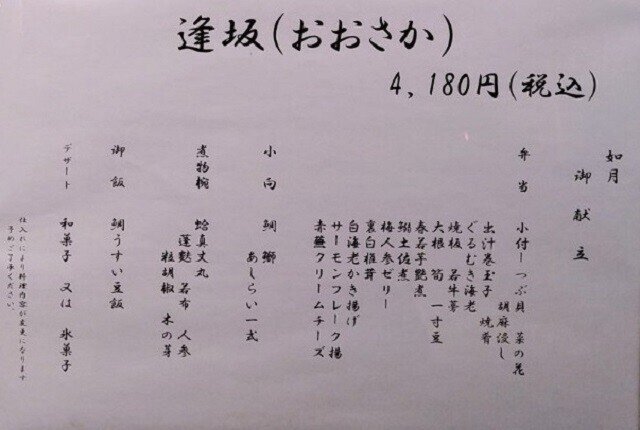 逢坂(おおさか)
4,180円(税込)
如月
御献立
弁当 小付ーつぶ貝 菜の花
胡麻浸し
出汁巻玉子 焼肴
ぐるむき海老
焼板 若牛蒡
大根 筍 一寸豆
春若芋艶煮
鰯土佐煮
梅人参ゼリー
裏白椎茸
白海老かき揚げ
サーモンフレーク揚
赤蕪クリームチーズ
小向 鯛 鰤
あしらい一式
煮物椀 蛤真丈丸
蓬麩 若布 人参
粒胡椒 木の芽
御飯 鯛うすい豆飯
デザート 和菓子 又は 氷菓子
仕入れにより料理内容が変更になります
予めご了承ください。